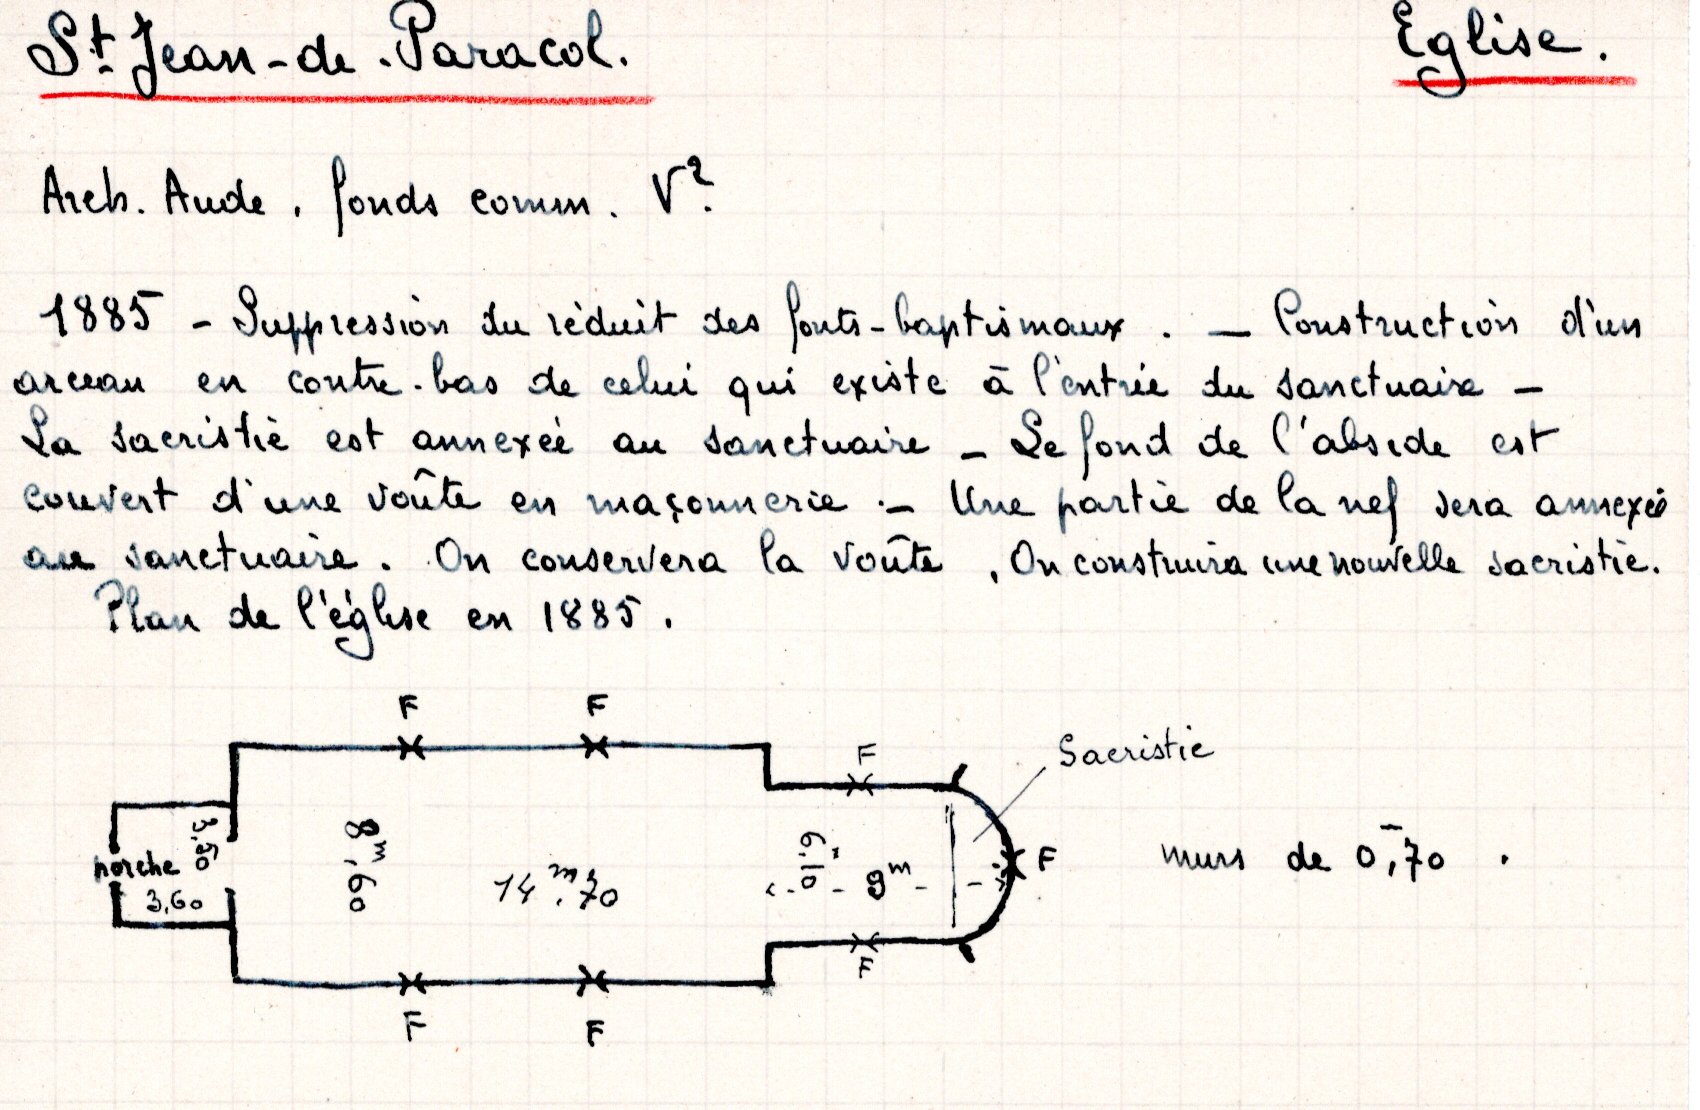 St Jean-de-Paracol. Eglise.
Arch. Aude. fonds comm. V².
1885 - Suppression du réduit des fonts-baptismaux. — Construction d'un
arceau en contre-bas de celui qui existe à l'entrée du sanctuaire —
La sacristie est annexée au sanctuaire — Le fond de l'abside est
couvert d'une voûte en maçonnerie. — Une partie de la nef sera annexée
au sanctuaire. On conservera la voûte. On construira une nouvelle sacristie.
Plan de l'église en 1885.
F F
F Sacristie
porche 3,60
8m,60
14m,70
6,10
9m
F
murs de 0,70.
F
F F